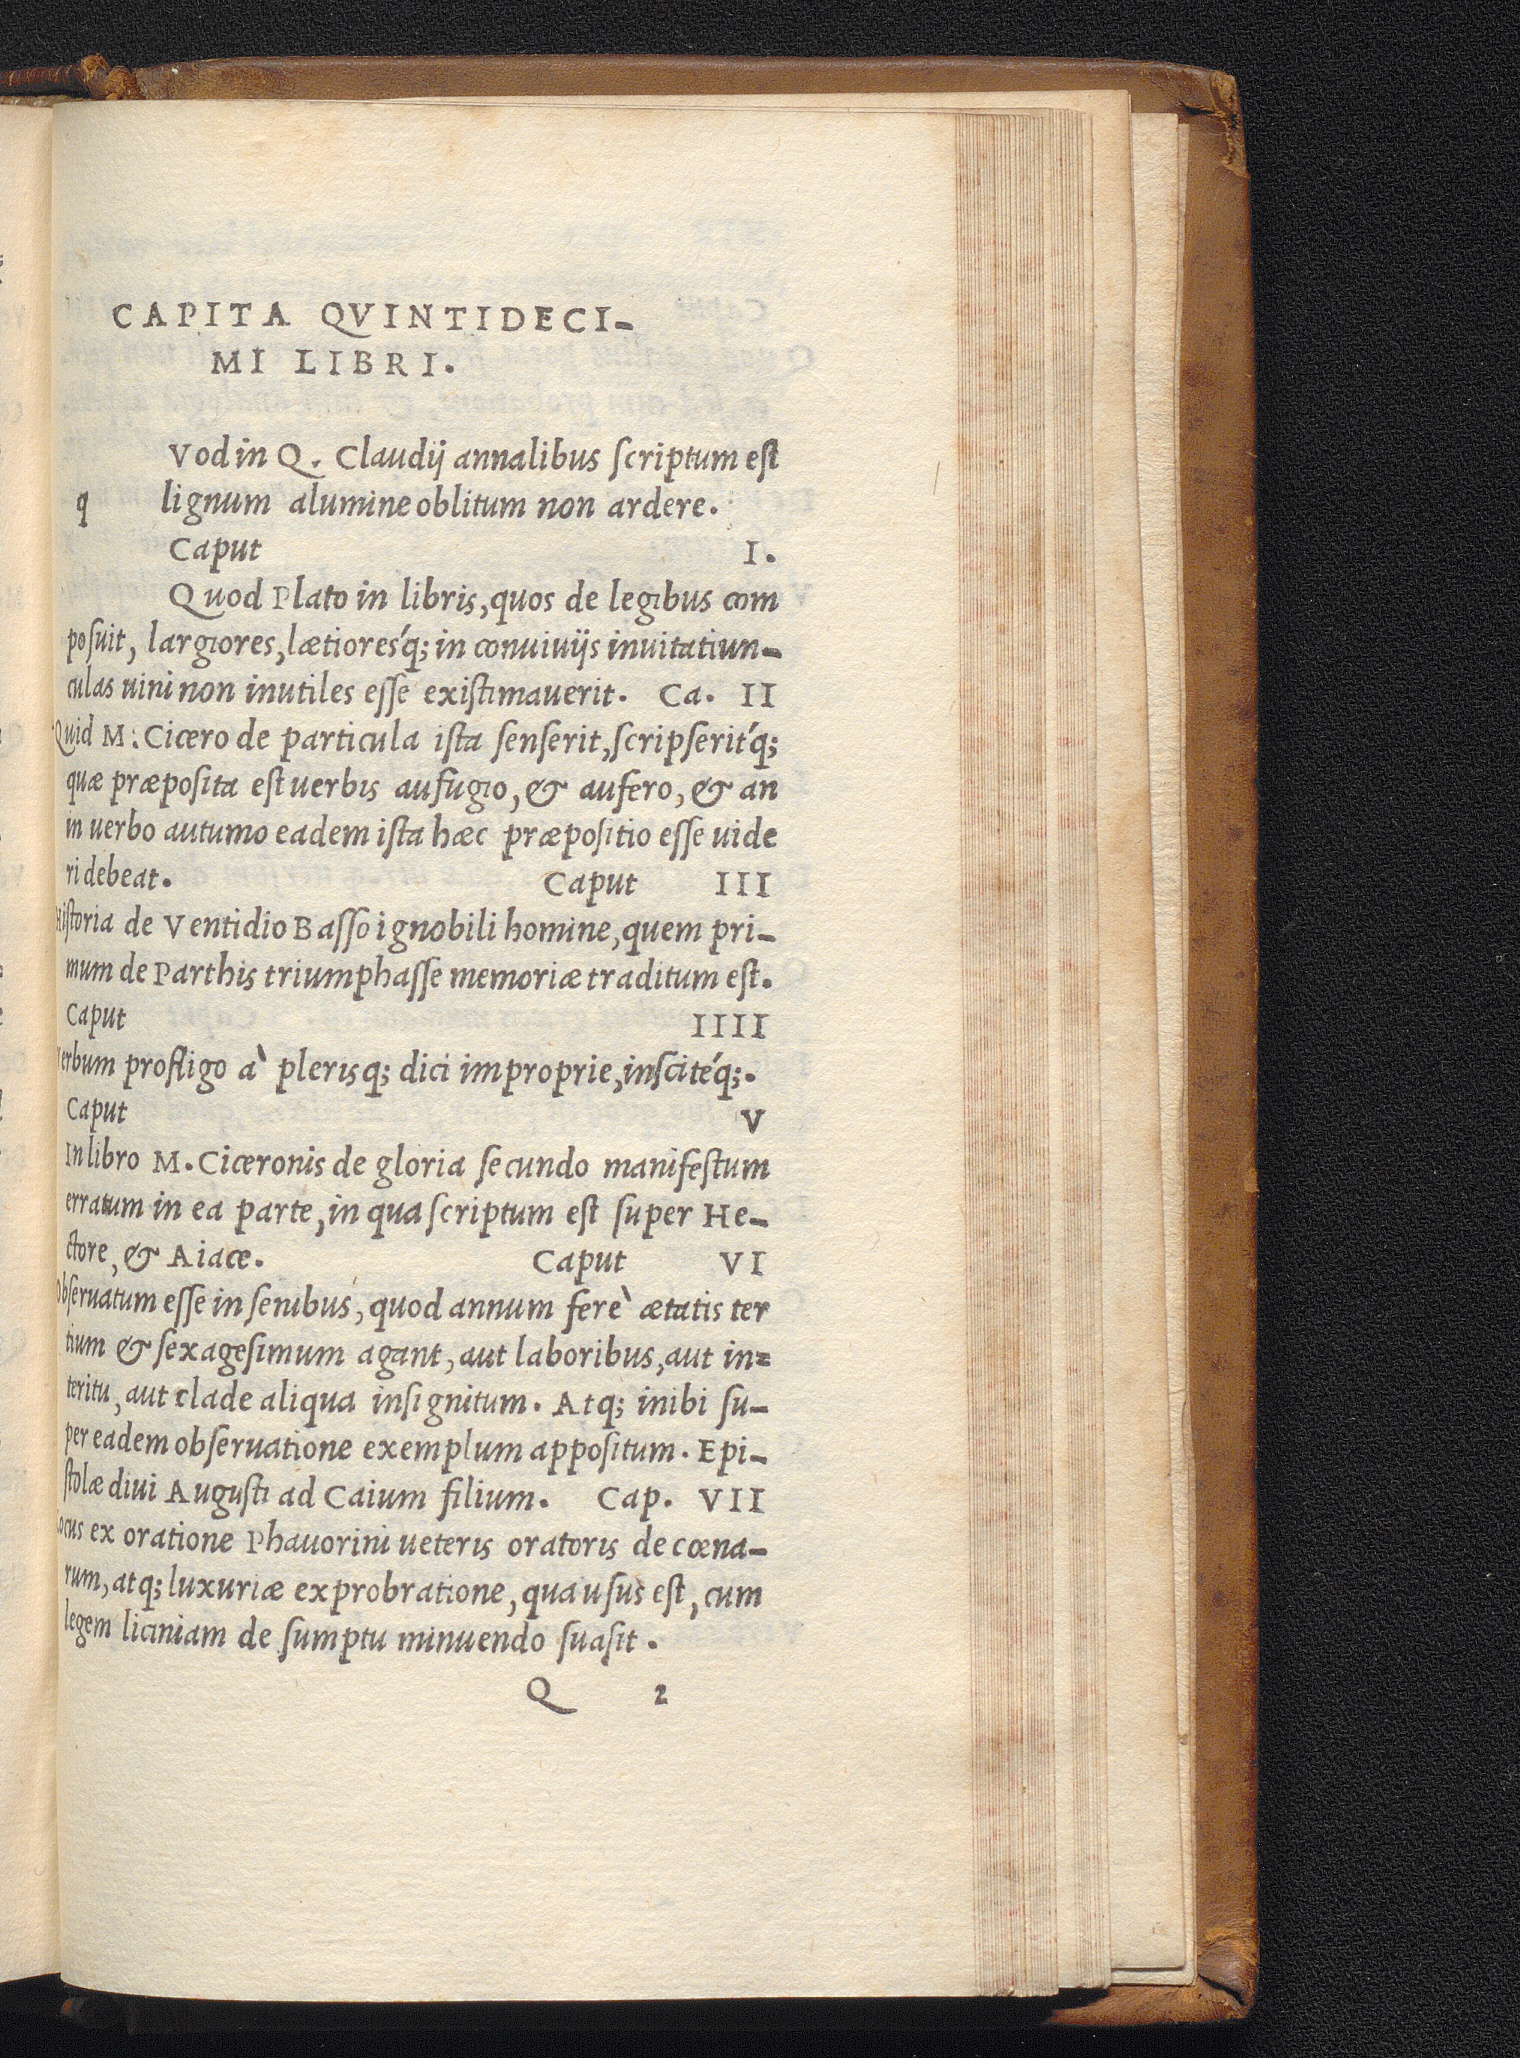 CAPITA QVINTIDECI-
MI LIBRI.
q Vod in Q. Claudij annalibus scriptum est
lignum alumine oblitum non ardere.
Caput I.
Quod Plato in libris, quos de legibus com
posuit, largiores, lætioresq́; in conuiuijs inuitatiun-
culas uini non inutiles esse existimauerit. Ca. II
Quid M. Cicero de particula ista senserit, scripseritq́;
quæ præposita est uerbis aufugio, & aufero, & an
in uerbo autumo eadem ista hæc præpositio esse uide
ri debeat. Caput III
Historia de Ventidio Basso ignobili homine, quem pri-
mum de Parthis triumphasse memoriæ traditum est.
Caput IIII
Verbum profligo à plerisq; dici improprie, insciteq́;.
Caput V
In libro M. Ciceronis de gloria secundo manifestum
erratum in ea parte, in qua scriptum est super He-
ctore, & Aiace. Caput VI
Obseruatum esse in senibus, quod annum ferè ætatis ter
tium & sexagesimum agant, aut laboribus, aut in=
teritu, aut clade aliqua insignitum. Atq; inibi su-
per eadem obseruatione exemplum appositum. Epi-
stolæ diui Augusti ad Caium filium. Cap. VII
Locus ex oratione Phauorini ueteris oratoris de cœna-
rum, atq; luxuriæ exprobratione, qua usus est, cum
legem liciniam de sumptu minuendo suasit.
Q 2